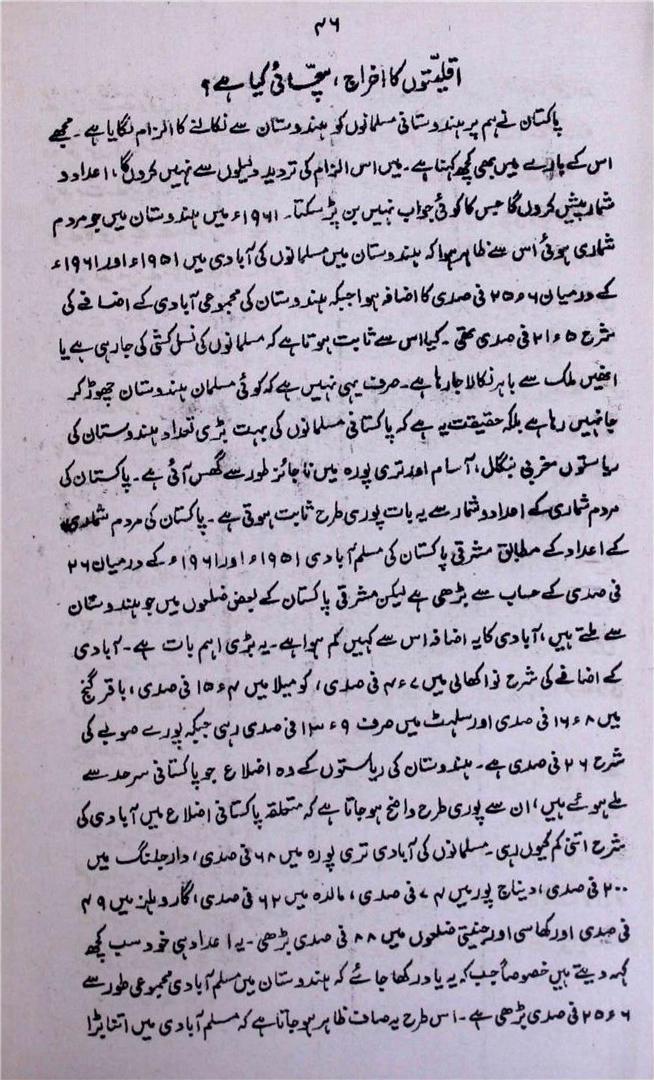 ۴۶
اقلیّتوں کا اخراج، سچّائی کیا ہے؟
پاکستان نے ہم پر ہندوستانی مسلمانوں کو ہندوستان سے نکالنے کا الزام لگایا ہے۔ مجھے
اس کے بارے میں بھی کچھ کہنا ہے۔ میں اس الزام کی تردید دلیلوں سے نہیں کروں گا، اعداد و
شمار پیش کروں گا جس کا کوئی جواب نہیں بن پڑ سکتا۔ ۱۹۶۱ء میں ہندوستان میں جو مردم
شماری ہوئی اس سے ظاہر ہوا کہ ہندوستان میں مسلمانوں کی آبادی میں ۱۹۵۱ء اور ۱۹۶۱ء
کے درمیان ۲۵۶۶ فی صدی کا اضافہ ہوا جبکہ ہندوستان کی مجموعی آبادی کے اضافے کی
شرح ۲۱۶۵ فی صدی تھی۔ کیا اس سے ثابت ہوتا ہے کہ مسلمانوں کی نسل کشی کی جا رہی ہے یا
انھیں ملک سے باہر نکالا جا رہا ہے۔ صرف یہی نہیں ہے کہ کوئی مسلمان ہندوستان چھوڑ کر
جا نہیں رہا ہے بلکہ حقیقت یہ ہے کہ پاکستانی مسلمانوں کی بہت بڑی تعداد ہندوستان کی
ریاستوں مغربی بنگال، آسام اور تری پورہ میں ناجائز طور سے گھس آئی ہے۔ پاکستان کی
مردم شماری کے اعداد و شمار سے یہ بات پوری طرح ثابت ہوتی ہے۔ پاکستان کی مردم شماری
کے اعداد کے مطابق مشرقی پاکستان کی مسلم آبادی ۱۹۵۱ء اور ۱۹۶۱ء کے درمیان ۲۶
فی صدی کے حساب سے بڑھی ہے لیکن مشرقی پاکستان کے بعض ضلعوں میں جو ہندوستان
سے ملتے ہیں، آبادی کا یہ اضافہ اس سے کہیں کم ہوا ہے۔ یہ بڑی اہم بات ہے۔ آبادی
کے اضافے کی شرح نواکھالی میں ۴۶۷ فی صدی، کومیلا میں ۱۵۶۴ فی صدی، باقر گنج
میں ۱۶۶۸ فی صدی اور سلہٹ میں صرف ۱۳۶۹ فی صدی رہی جبکہ پورے صوبے کی
شرح ۲۶ فی صدی ہے۔ ہندوستان کی ریاستوں کے وہ اضلاع جو پاکستانی سرحد سے
ملے ہوئے ہیں، ان سے پوری طرح واضح ہو جاتا ہے کہ متعلقہ پاکستانی اضلاع میں آبادی کی
شرح اتنی کم کیوں رہی۔ مسلمانوں کی آبادی تری پورہ میں ۶۸ فی صدی، دارجلنگ میں
۲۰۰ فی صدی، دیناج پور میں ۴۷ فی صدی، مالدہ میں ۶۲ فی صدی، گارو ہلز میں ۴۹
فی صدی اور کھاسی اور جنیتی ضلعوں میں ۸۸ فی صدی بڑھی۔ یہ اعداد ہی خود سب کچھ
کہہ دیتے ہیں خصوصاً جب کہ یہ یاد رکھا جائے کہ ہندوستان میں مسلم آبادی مجموعی طور سے
۲۵۶۶ فی صدی بڑھی ہے۔ اس طرح یہ صاف ظاہر ہو جاتا ہے کہ مسلم آبادی میں اتنا بڑا